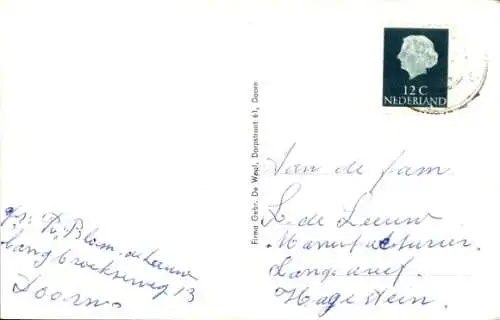 12 C
NEDERLAND
Firma Gebr. De Waal, Dorpstraat 61, Doorn
Aan de fam
L. de Leeuw
Manufacturier.
Langedreef.
Hagestein.
R. Blom-de Leeuw
Langbroekseweg 13
Doorn